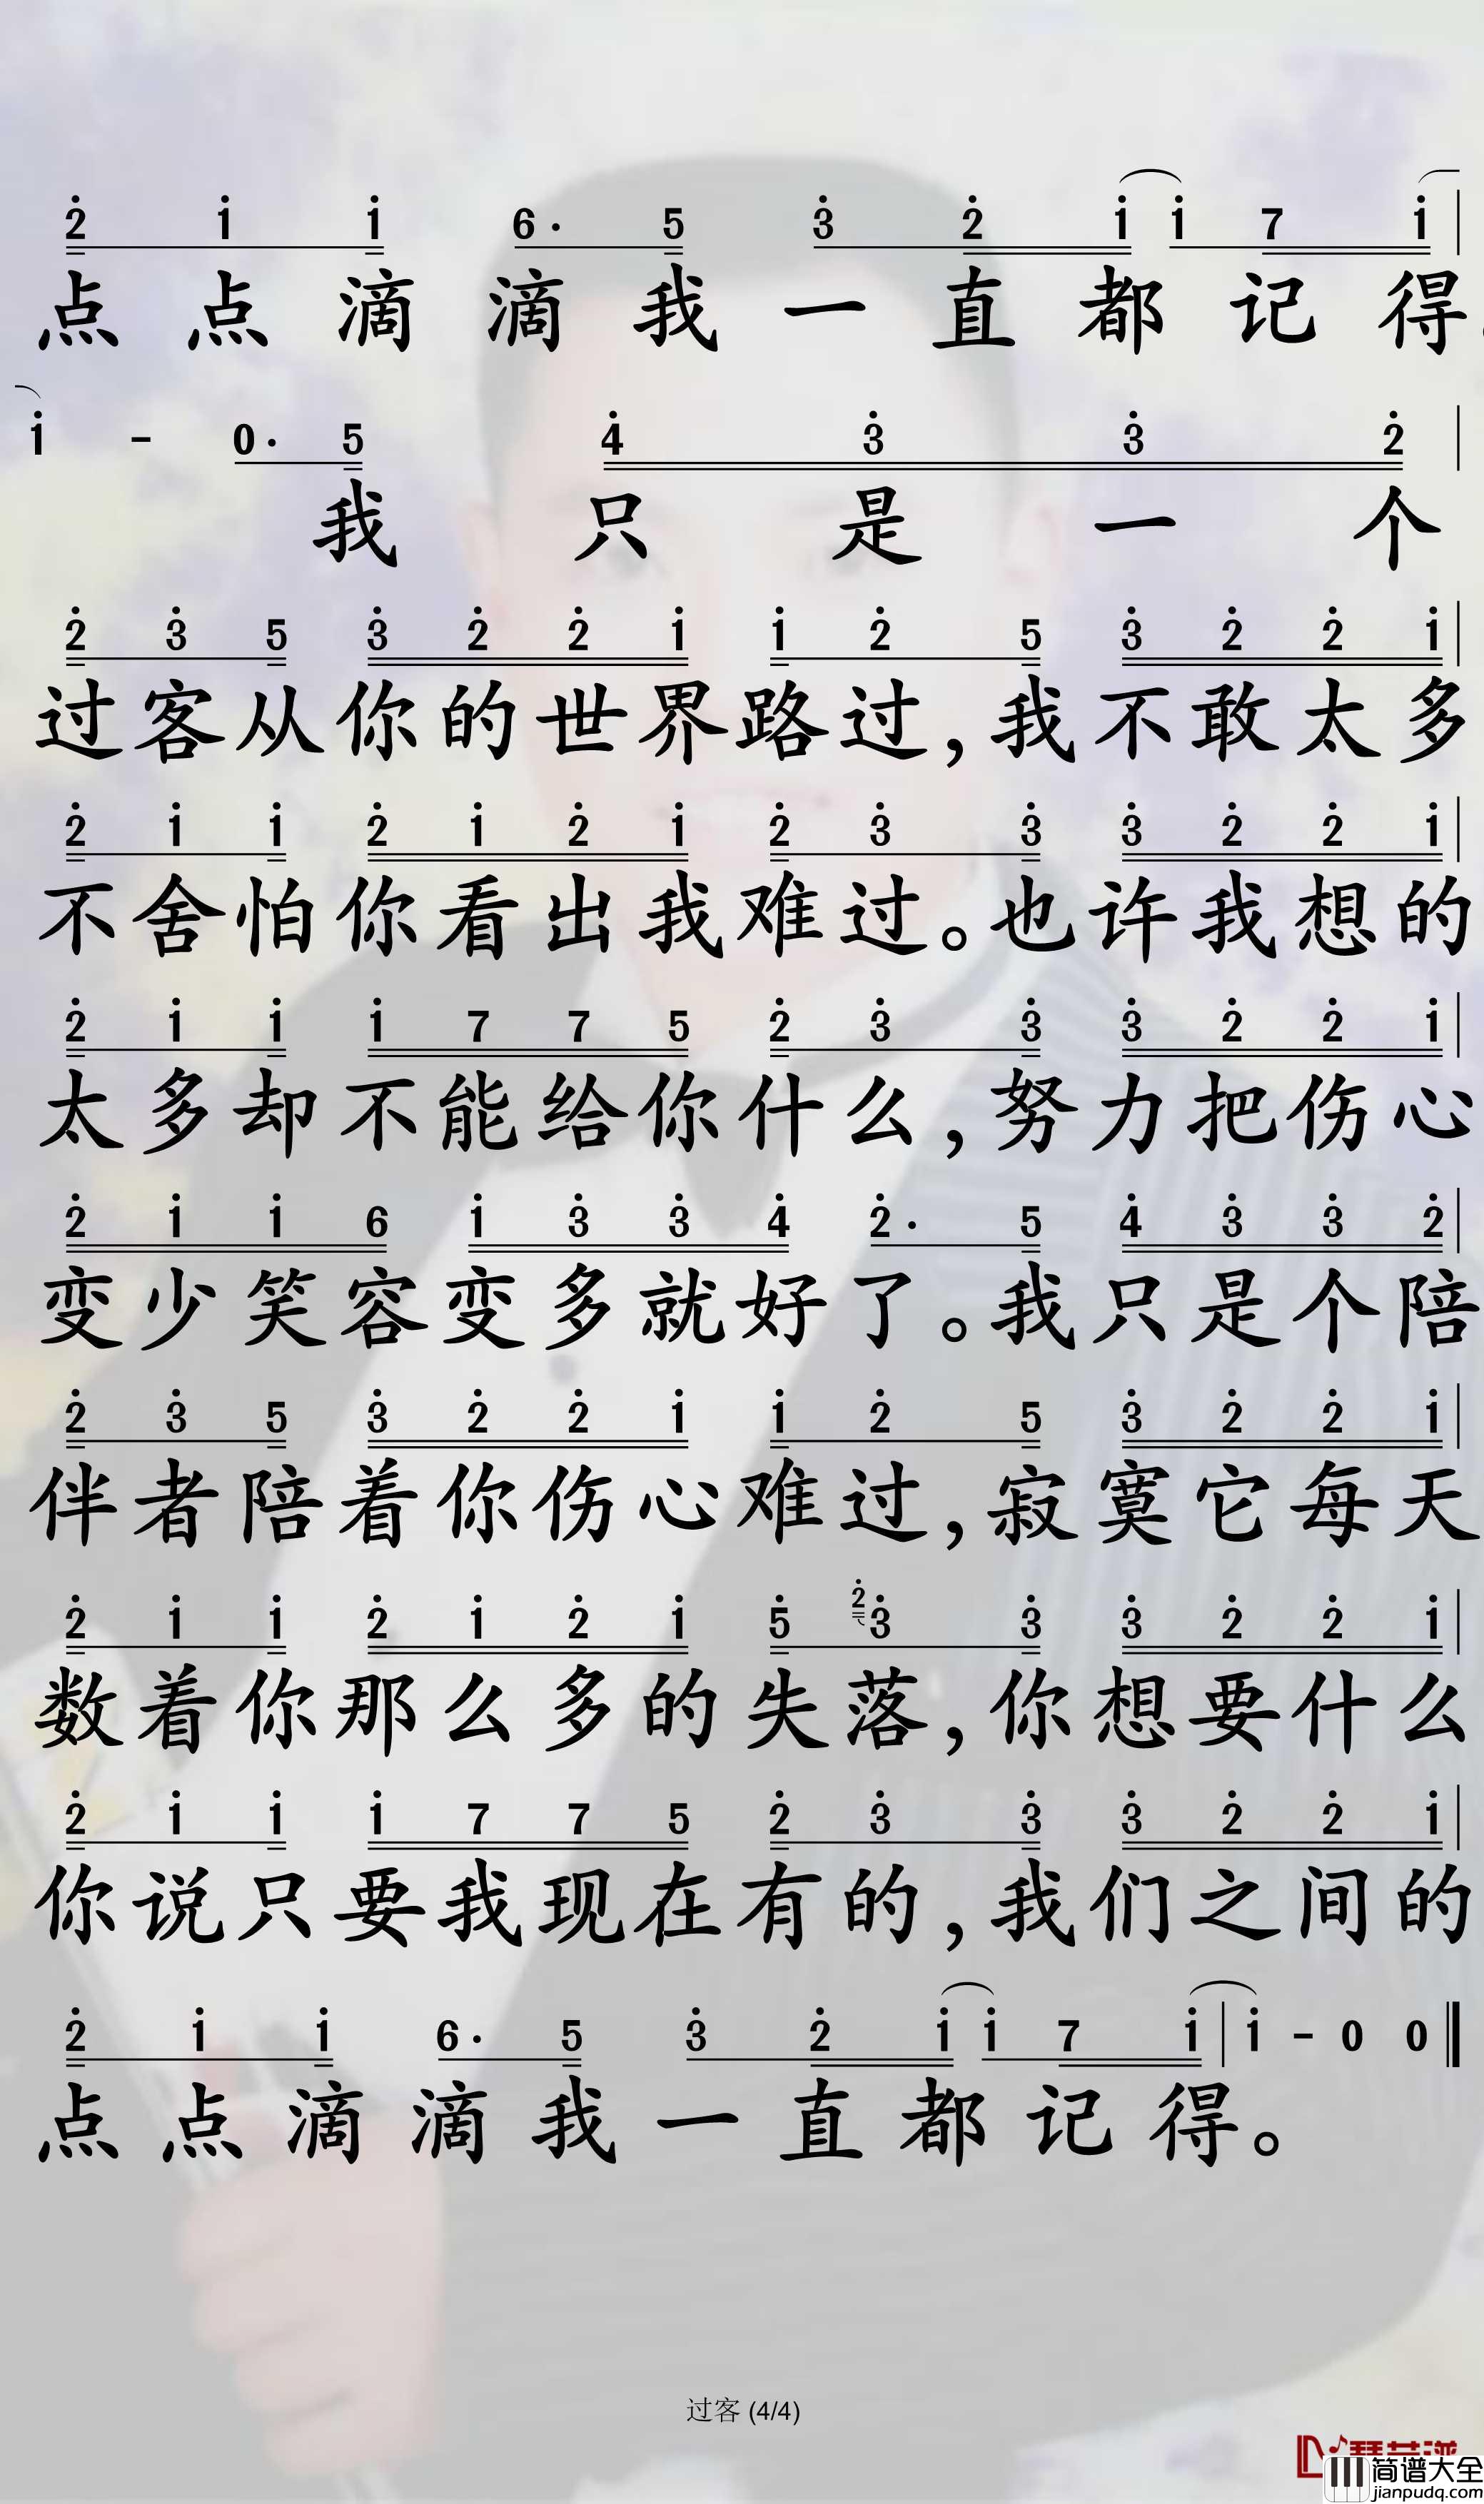 2̇ 1̇ 1̇ 6· 5 3̇ 2̇ 1̇ 1̇ 7 1̇ |
点点滴滴我一直都记得
1̇ - 0· 5 4̇ 3̇ 3̇ 2̇ |
我只是一个
2̇ 3̇ 5̇ 3̇ 2̇ 2̇ 1̇ 1̇ 2̇ 5̇ 3̇ 2̇ 2̇ 1̇ |
过客从你的世界路过，我不敢太多
2̇ 1̇ 1̇ 2̇ 1̇ 2̇ 1̇ 2̇ 3̇ 3̇ 3̇ 2̇ 2̇ 1̇ |
不舍怕你看出我难过。也许我想的
2̇ 1̇ 1̇ 1̇ 7 7 5 2̇ 3̇ 3̇ 3̇ 2̇ 2̇ 1̇ |
太多却不能给你什么，努力把伤心
2̇ 1̇ 1̇ 6 1̇ 3̇ 3̇ 4̇ 2̇· 5̇ 4̇ 3̇ 3̇ 2̇ |
变少笑容变多就好了。我只是个陪
2̇ 3̇ 5̇ 3̇ 2̇ 2̇ 1̇ 1̇ 2̇ 5̇ 3̇ 2̇ 2̇ 1̇ |
伴者陪着你伤心难过，寂寞它每天
2̇ 1̇ 1̇ 2̇ 1̇ 2̇ 1̇ 5̇ 2̇ 3̇ 3̇ 3̇ 2̇ 2̇ 1̇ |
数着你那么多的失落，你想要什么
2̇ 1̇ 1̇ 1̇ 7 7 5 2̇ 3̇ 3̇ 3̇ 2̇ 2̇ 1̇ |
你说只要我现在有的，我们之间的
2̇ 1̇ 1̇ 6· 5 3̇ 2̇ 1̇ 1̇ 7 1̇ | 1̇ - 0 0 ‖
点点滴滴我一直都记得。
过客 (4/4)
简谱大全
jianpudq.com